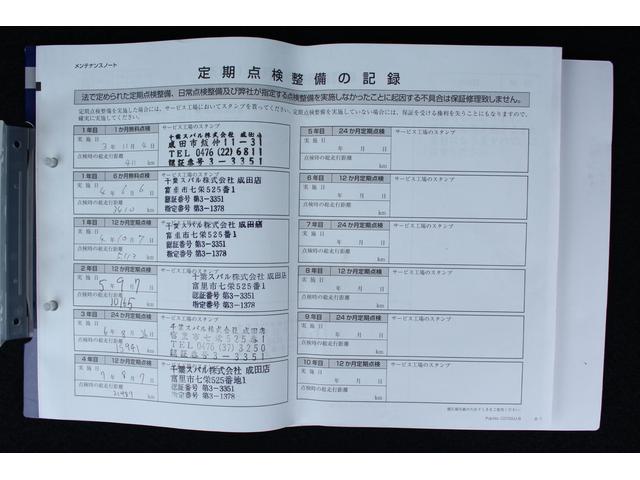 メンテナンスノート
定期点検整備の記録
法で定められた定期点検整備、日常点検整備及び弊社が指定する点検整備を実施しなかったことに起因する不具合は保証修理致しません。
定期点検整備を実施した場合には、サービス工場においてスタンプを貰ってください。定期点検整備を実施していない場合には、保証を受ける権利を失うことにもなりますので、
確実に実施してください。
1年目 1か月無料点検 サービス工場のスタンプ
実施日
3年11月9日
点検時の総走行距離
411 km
千葉スバル株式会社
TEL 0476 (22) 6811
認証番号 3-3351
1年目 6か月無料点検 サービス工場のスタンプ
実施日
4年6月6日
点検時の総走行距離
3410 km
千葉スバル株式会社 成田店
富里市七栄525番1
認証番号 第3-3351
指定番号 第3-1378
1年目 12か月定期点検 サービス工場のスタンプ
実施日
4年10月7日
点検時の総走行距離
km
千葉スバル株式会社 成田店
富里市七栄525番1
認証番号 第3-3351
指定番号 第3-1378
2年目 12か月定期点検 サービス工場のスタンプ
実施日
5年9月7日
点検時の総走行距離
10165 km
千葉スバル株式会社 成田店
富里市七栄525番1
認証番号 第3-3351
指定番号 第3-1378
3年目 24か月定期点検 サービス工場のスタンプ
実施日
6年8月26日
点検時の総走行距離
15941 km
千葉スバル株式会社 成田店
富里市七栄525番1
TEL 0476 (37) 3250
認証番号 3-3351
4年目 12か月定期点検 サービス工場のスタンプ
実施日
7年8月7日
点検時の総走行距離
21987 km
千葉スバル株式会社 成田店
富里市七栄525番地1
認証番号 第3-3351
指定番号 第3-1378
5年目 24か月定期点検 サービス工場のスタンプ
実施日
年 月 日
点検時の総走行距離
km
6年目 12か月定期点検 サービス工場のスタンプ
実施日
年 月 日
点検時の総走行距離
km
7年目 24か月定期点検 サービス工場のスタンプ
実施日
年 月 日
点検時の総走行距離
km
8年目 12か月定期点検 サービス工場のスタンプ
実施日
年 月 日
点検時の総走行距離
km
9年目 24か月定期点検 サービス工場のスタンプ
実施日
年 月 日
点検時の総走行距離
km
10年目 12か月定期点検 サービス工場のスタンプ
実施日
年 月 日
点検時の総走行距離
km